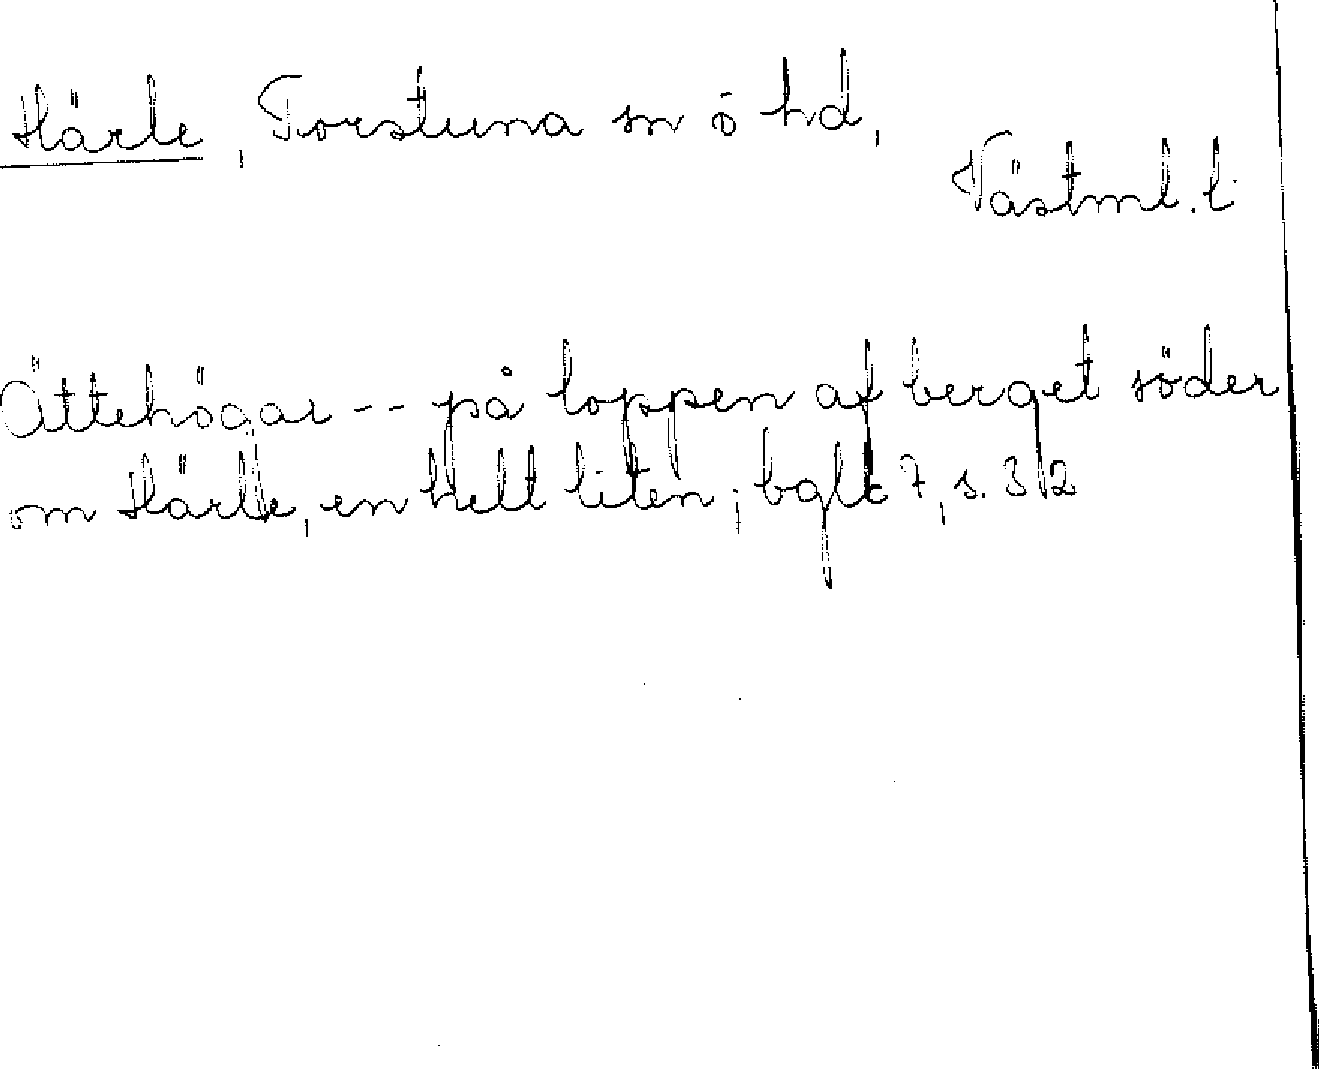 Härle, Torstuna sn ö hd,
Västml. l
Ättehögar -- på toppen af berget söder
om Härle, en helt liten; bglk 7, s. 32